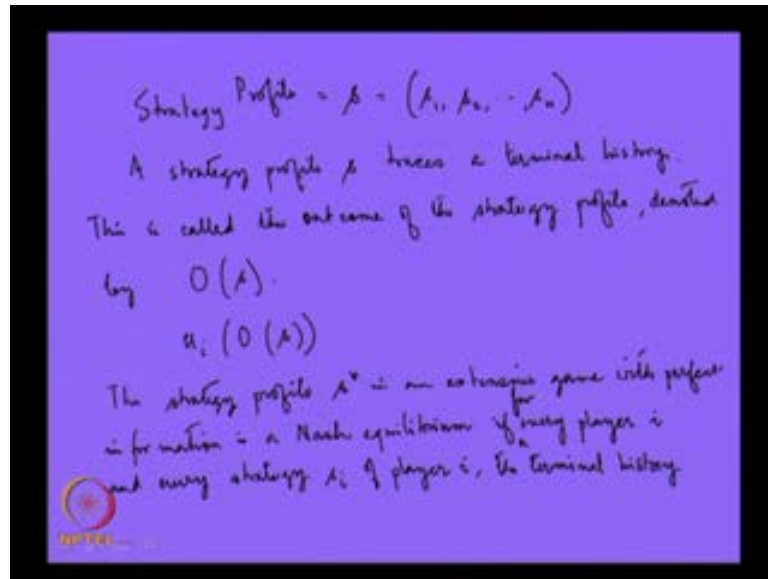 Strategy Profile = s = (s₁, s₂, ..., sₙ)
A strategy profile s traces a terminal history.
This is called the outcome of the strategy profile, denoted
by O(s).
uᵢ (O(s))
The strategy profile s* in an extensive game with perfect
information is a Nash equilibrium if for every player i
and every strategy sᵢ of player i, the terminal history
NPTEL